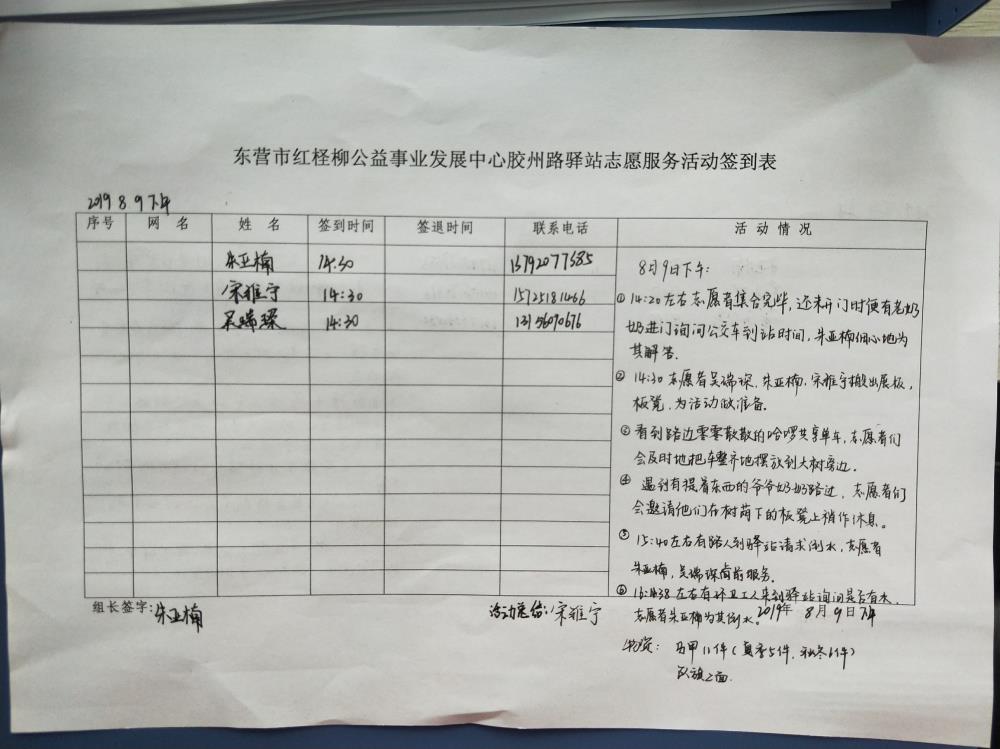 东营市红柽柳公益事业发展中心胶州路驿站志愿服务活动签到表
2019 8 9下午
序号 网 名 姓 名 签到时间 签退时间 联系电话 活 动 情 况
朱亚楠 14:30 13792077385
宋雅宁 14:30 15725181466
吴瑞琛 14:30 13156090676
8月9日下午:
① 14:20左右志愿者集合完毕,还未开门时便有老奶
奶进门询问公交车到站时间,朱亚楠细心地为
其解答.
② 14:30志愿者吴瑞琛,朱亚楠,宋雅宁搬出展板,
板凳,为活动做准备。
③ 看到路边零零散散的哈啰共享单车,志愿者们
会及时地把车整齐地摆放到大树旁边.
④ 遇到有提着东西的爷爷奶奶路过,志愿者们
会邀请他们在树荫下的板凳上稍作休息。
⑤ 15:40左右有路人到驿站请求倒水,志愿者
朱亚楠,吴瑞琛向前服务.
⑥ 16:38左右有环卫工人来到驿站询问是否有水.
志愿者朱亚楠为其倒水。
组长签字:朱亚楠 活动总结:宋雅宁 2019年 8月9日下午
物资: 马甲11件(夏季5件,秋冬6件)
队旗2面.